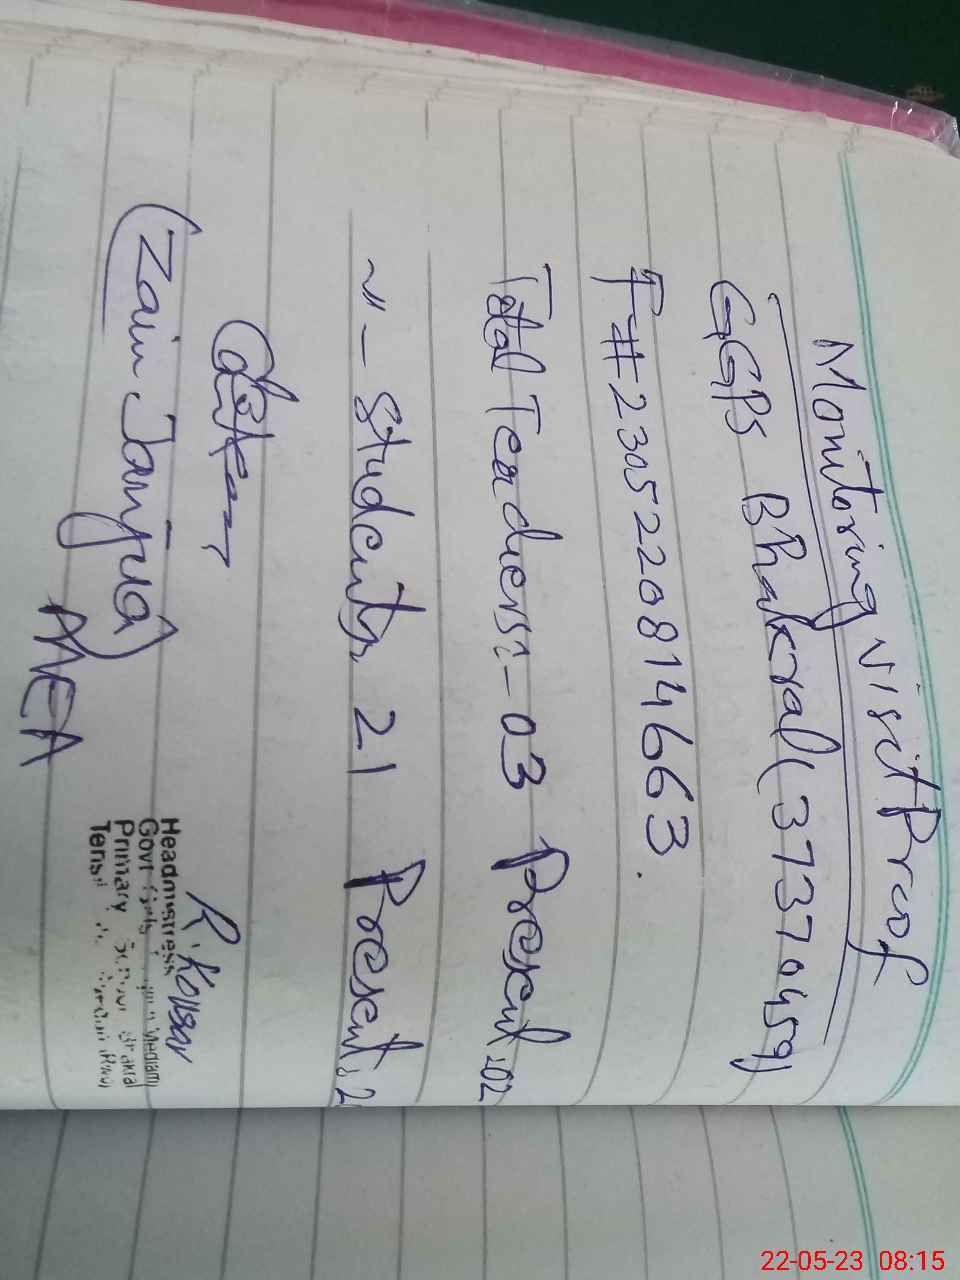 Monitoring visit Proof
GGPS Bhakral (37370459)
T# 2305220814663.
Total Teachers:- 03 Present:02
~"- Students 21 Present:2
(Zain Janjua)
AEA
R. Kousar
Headmistress
Govt Girls Medium
Primary
Tensil
22-05-23 08:15